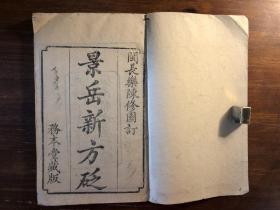 閩長樂陳修園訂
景岳新方砭
務本堂藏版